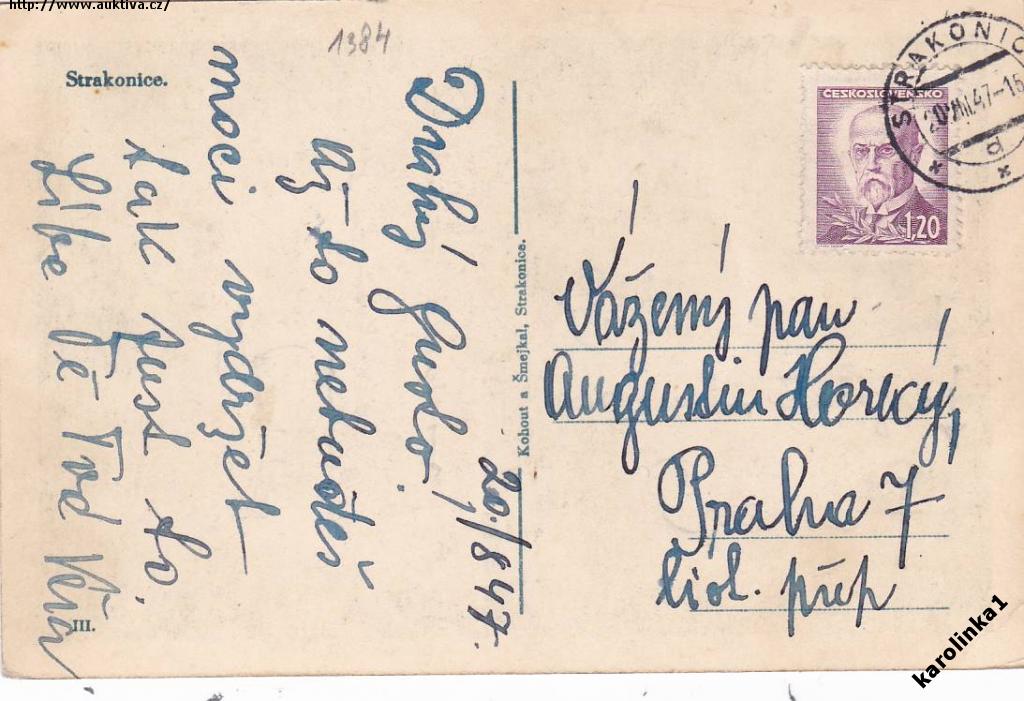 http://www.auktiva.cz/
1384
Strakonice.
20./8 47.
Drahý Gusto.
Až to nebudeš
moci vydržet
tak pust to.
Líbe Tě Tvá
III.
Kohout a Šmejkal, Strakonice.
ČESKOSLOVENSKO
1,20
STRAKONIC
20.VIII.47-16
d
Vážený pan
Augustin Horký,
Praha 7
karolinka1